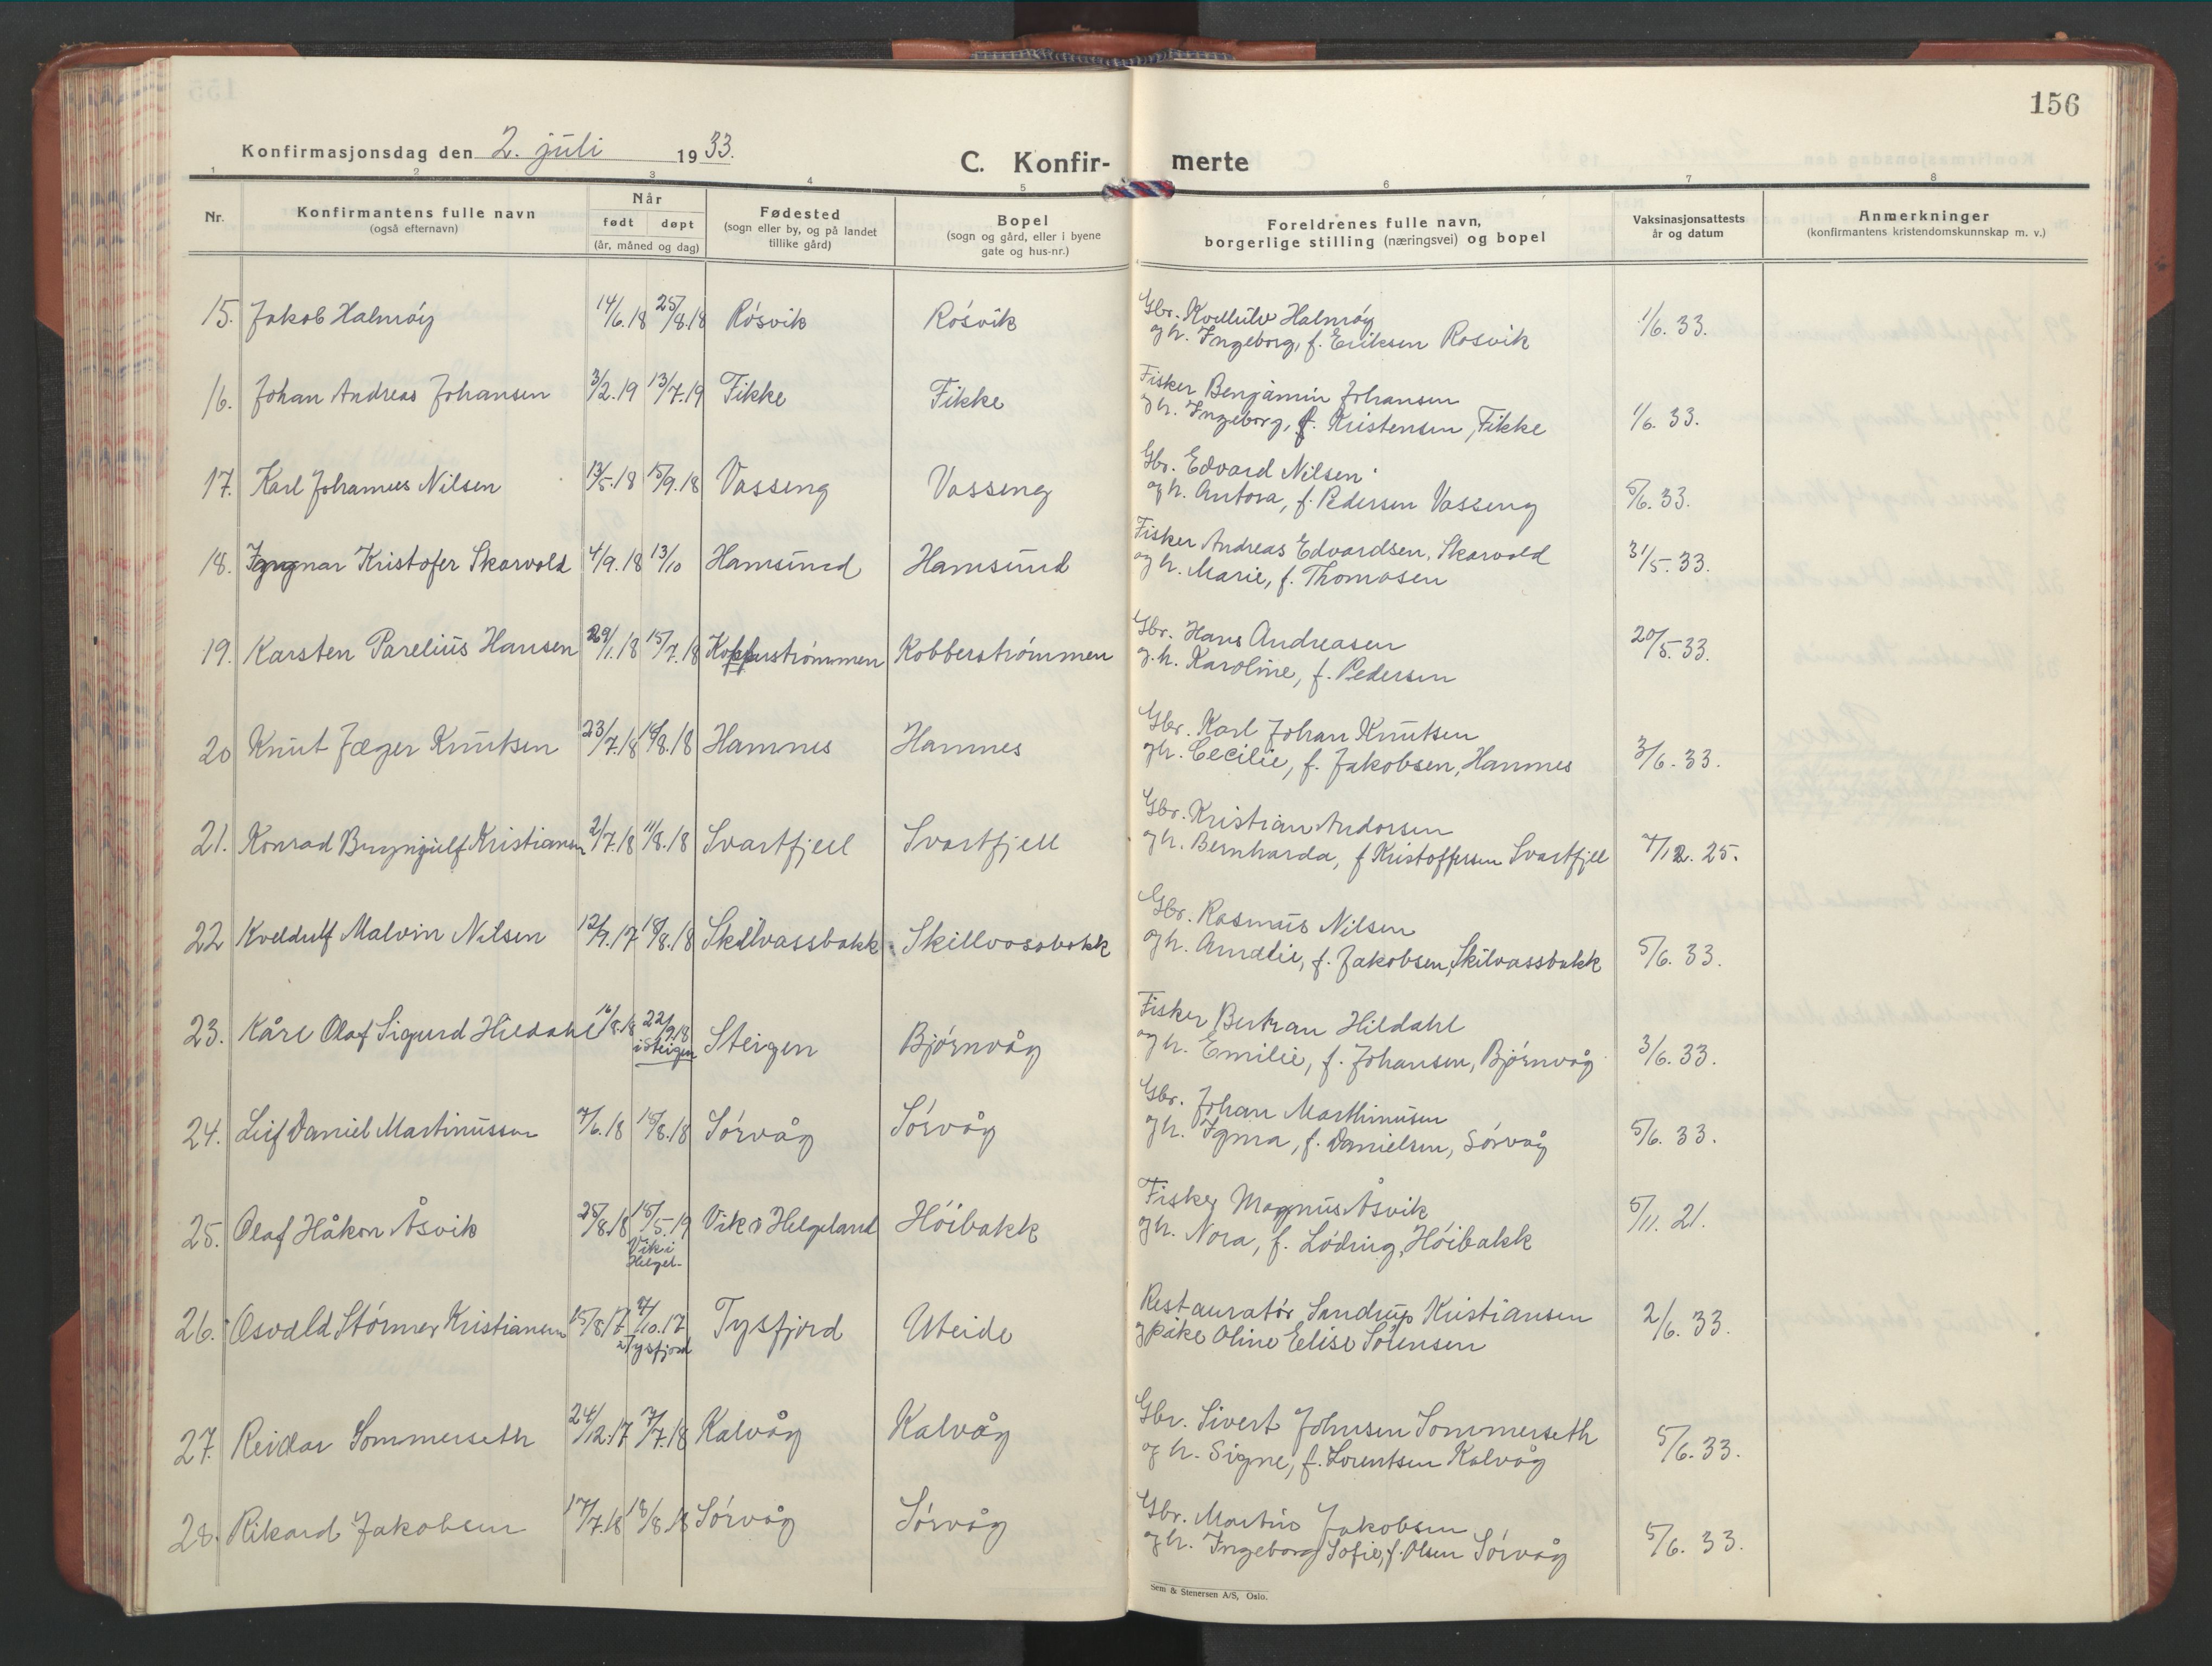 156
Konfirmasjonsdag den 2. juli 1933.
C. Konfir- merte
1 2 3 4 5 6 7 8
Nr. Konfirmantens fulle navn (også efternavn) Når født døpt (år, måned og dag) Fødested (sogn eller by, og på landet tillike gård) Bopel (sogn og gård, eller i byene gate og hus-nr.) Foreldrenes fulle navn, borgerlige stilling (næringsvei) og bopel Vaksinasjonsattests år og datum Anmerkninger (konfirmantens kristendomskunnskap m. v.)
15. Jakob Halmøy 14/6.18 25/8.18 Røsvik Røsvik Gbr. Kvellulv Halmøy 1/6. 33.
og h. Ingeborg, f. Eriksen Røsvik
16. Johan Andreas Johansen 3/2.19 13/7.19 Fikke Fikke Fisker Benjamin Johansen 1/6. 33.
og h. Ingeborg, f. Kristensen, Fikke
17. Karl Johannes Nilsen 13/5.18 15/9.18 Vasseng Vasseng Gbr. Edvard Nilsen 5/6. 33.
og h. Antora, f. Pedersen Vasseng
18. Kristofer Skarvold 4/9.18 13/10 Hamsund Hamsund Fisker Andreas Edvardsen, Skarvold 31/5. 33.
og h. Marie, f. Thomasen
19. Karsten Parelius Hansen 29/1.18 15/7.18 Kobberstrømmen Gbr. Hans Andreasen 20/5. 33.
og h. Karoline, f. Pedersen
20 Knut Jæger Knutsen 23/7.18 18/8.18 Hamnes Hamnes Gbr. Karl Johan Knutsen 3/6. 33.
og h. Cecilie, f. Jakobsen, Hamnes
21. Konrad Brynjulf Kristiansen 2/7.18 11/8.18 Svartfjell Svartfjell Gbr. Kristian Andorsen 7/12. 25.
og h. Bernharda, f Kristoffersen Svartfjell
22 Kveldulf Malvin Nilsen 12/9.17 18/8.18 Skilvassbakk Skillvassbakk Gbr. Rasmus Nilsen 5/6. 33.
og h. Amalie, f. Jakobsen, Skilvassbakk
23. Kåre Olaf Sigurd Hildahl 16/8.18 22/9.18 i Steigen Steigen Bjørnvåg Fisker Bertran Hildahl 3/6. 33.
og h. Emilie, f. Johansen, Bjørnvåg
24. Leif Daniel Martinussen 7/6.18 18/8.18 Sørvåg Sørvåg Gbr. Johan Marthinusen 5/6. 33.
og h. Igma, f. Danielsen, Sørvåg
25. Olaf Håkon Åsvik 25/8.18 18/5.19 Vik i Helgel. Vik i Helgeland Høibakk Fisker Magnus Åsvik 5/11. 21.
og h. Nora, f. Løding, Høibakk
26. Osvald Størmer Kristiansen 15/8.17 7/10.17 i Tysfjord Tysfjord Uteide Restauratør Sandrup Kristiansen 2/6. 33.
og pike Oline Elise Sørensen
27. Reidar Sommerseth 24/12.17 7/7.18 Kalvåg Kalvåg Gbr. Sivert Johnsen Sommerseth 5/6. 33.
og h. Signe, f. Lorentsen Kalvåg
28. Rikard Jakobsen 17/7.18 18/8.18 Sørvåg Sørvåg Gbr. Martin Jakobsen 5/6. 33.
og h. Ingeborg Sofie, f. Olsen Sørvåg
Sem & Stenersen A/S, Oslo.